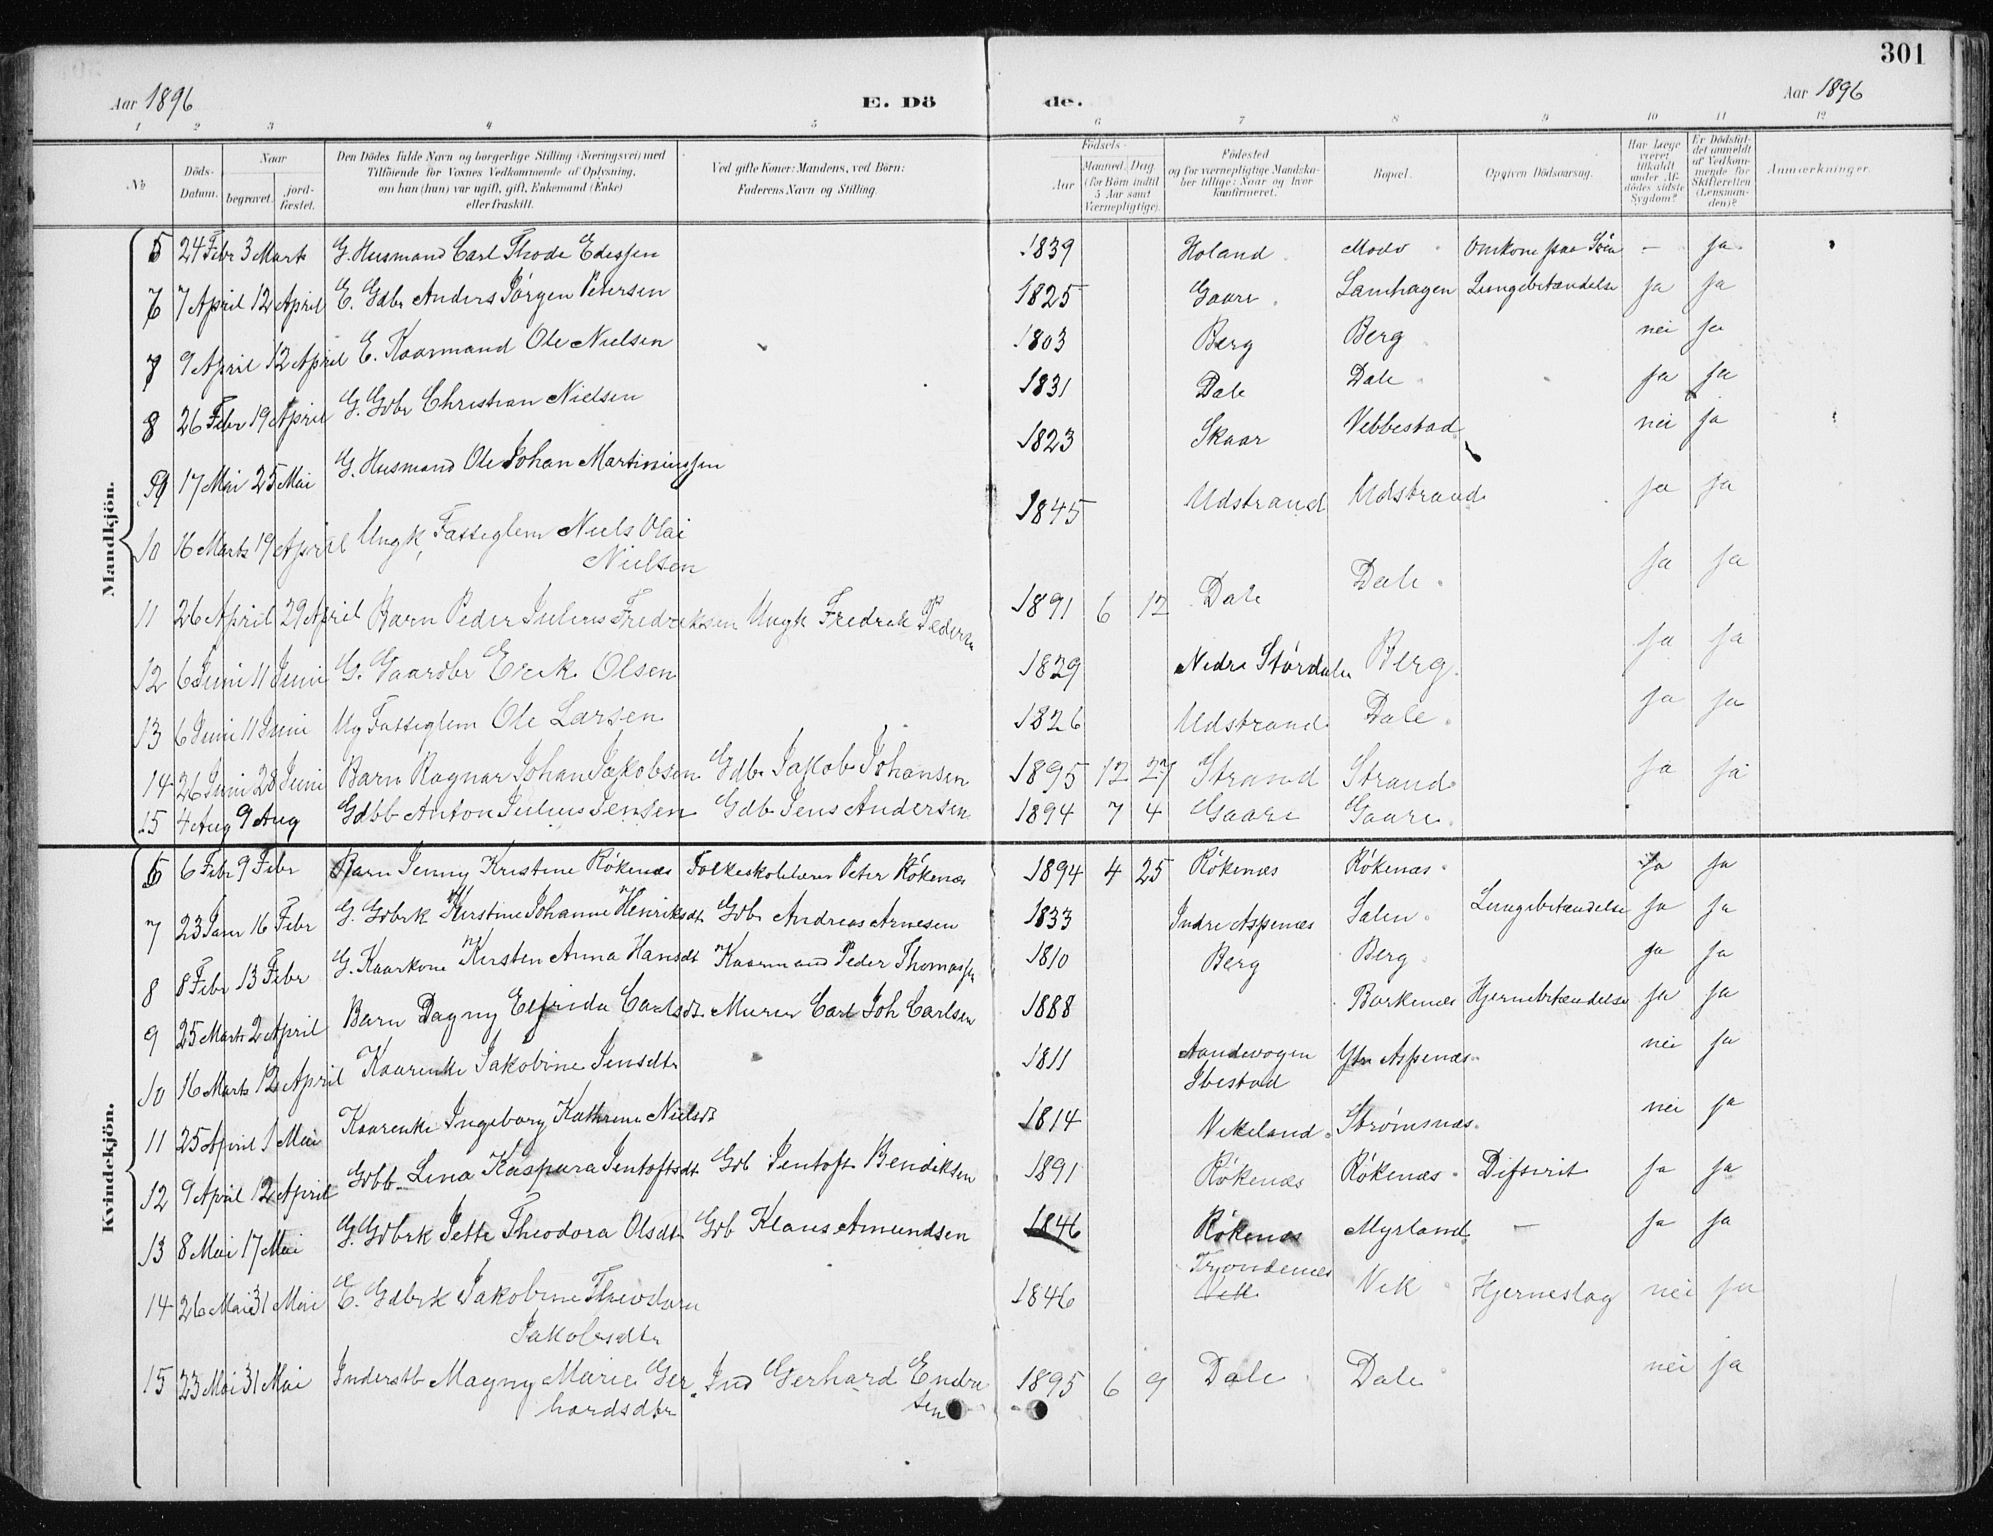 301
Aar 1896 E. Dö de. Aar 1896
1 2 3 4 5 6 7 8 9 10 11 12
No Döds-Datum. Naar begravet. jord-fæstet. Den Dödes fulde Navn og borgerlige Stilling (Næringsvei) med Tilföiende for Voxnes Vedkommende af Oplysning, om han (hun) var ugift, gift, Enkemand (Enke) eller fraskilt. Ved gifte Koner: Mandens, ved Börn: Faderens Navn og Stilling. Födsels- Aar Maaned. Dag. (for Börn indtil 5 Aar samt Værnepligtige). Födested og for værnepligtige Mandska-ber tillige: Naar og hvor konfirmeret. Bopæl. Opgiven Dödsaarsag. Har Læge været tilkaldt under Af-dödes sidste Sygdom? Er Dödsfal-det anmeldt af Vedkom-mende for Skifteretten (Lensman-den)? Anmærkninger.
Mandkjön.
5 24 Febr 3 Marts G. Husmand Carl Thode Edessen 1839 Holand Modo Omkom paa Søen – ja
6 7 April 12 April E. Gdbr Anders Jørgen Petersen 1825 Gaare Lamhagen Lungebetændelse ja ja
7 9 April 12 April E. Kaarmand Ole Nielsen 1803 Berg Berg nei ja
8 26 Febr 19 April G. Gdbr Christian Nielsen 1831 Dale Dale ja ja
9 17 Mai 25 Mai G. Husmand Ole Johan Martinussen 1823 Skaar Vebbestad nei ja
10 16 Marts 19 April Ungk. Fattiglem Niels Olai 1845 Udstrand Udstrand ja ja
Nielsen
11 26 April 29 April Barn Peder Julius Fredriksen Ungk Fredrik Pedersen 1891 6 12 Dale Dale ja ja
12 6 Juni 11 Juni G. Gaardbr Erik Olsen 1829 Nedre Størdalen Berg ja ja
13 6 Juni 11 Juni Ug Fattiglem Ole Larsen 1826 Udstrand Dale ja ja
14 26 Juni 28 Juni Barn Ragnar Johan Jakobsen Gdb. Jakob Johansen 1895 12 27 Strand Strand ja ja
15 4 Aug 9 Aug Gdbb Anton Julius Jensen Gdb Jens Andersen 1894 7 4 Gaare Gaare
Kvindekjön.
6 6 Febr 9 Febr Barn Jenny Kristine Røkenæs Folkeskolelærer Peter Røkenæs 1894 4 25 Røkenæs Røkenæs ja ja
7 23 Janr 16 Febr G. Gdbrk Kirstine Johanne Henriksdt. Gdb. Andreas Arnesen 1833 Indre Aspenæs Salen Lungebetændelse ja ja
8 8 Febr 13 Febr G. Kaarkone Kirsten Anna Hansdt Kaarmand Peder Thomassen 1810 Berg Berg ja ja
9 25 Marts 2 April Barn Dagny Elfrida Carlsdt. Murer Carl Joh Carlsen 1888 Borkenæs Hjernebetændelse ja ja
10 16 Marts 12 April Kaarenke Jakobine Jensdtr 1811 Aandevogen Ytre Aspenæs nei ja
Ibestad
11 25 April 1 Mai Kaarenke Ingeborg Kathrine Nielsdt 1814 Vikeland Strømsnæs nei ja
12 9 April 12 April Gdbb. Lina Kaspara Jentoftsdt Gdb Jentoft Bendiksen 1891 Røkenæs Røkenæs Difterit ja ja
13 8 Mai 17 Mai G. Gdbrk Jette Theodora Olsdtr Gdb Klaus Amundsen 1846 Røkenæs Myrland – ja ja
Trondenes
14 26 Mai 31 Mai E. Gdbrk Jakobine Theodora 1846 Vik Vik Hjerneslag nei ja
Jakobsdtr
15 23 Mai 31 Mai Inderstb Magny Marie Ger- Ind Gerhard Endre 1895 6 9 Dale Dale nei ja
hardsdtr sen